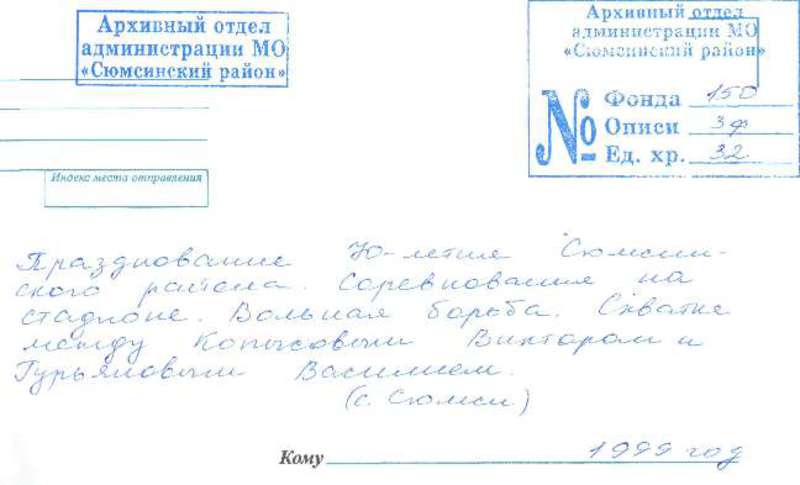 Архивный отдел
администрации МО
«Сюмсинский район»
Архивный отдел
администрации МО
«Сюмсинский район»
№
Фонда 150
Описи 3ф
Ед. хр. 32
Индекс места отправления
Празднование 70-летия Сюмсин-
ского района. Соревнования на
стадионе. Вольная борьба. Схватка
между Копысовым Виктором и
Гурьяновым Василием.
(с. Сюмси)
Кому 1999 год